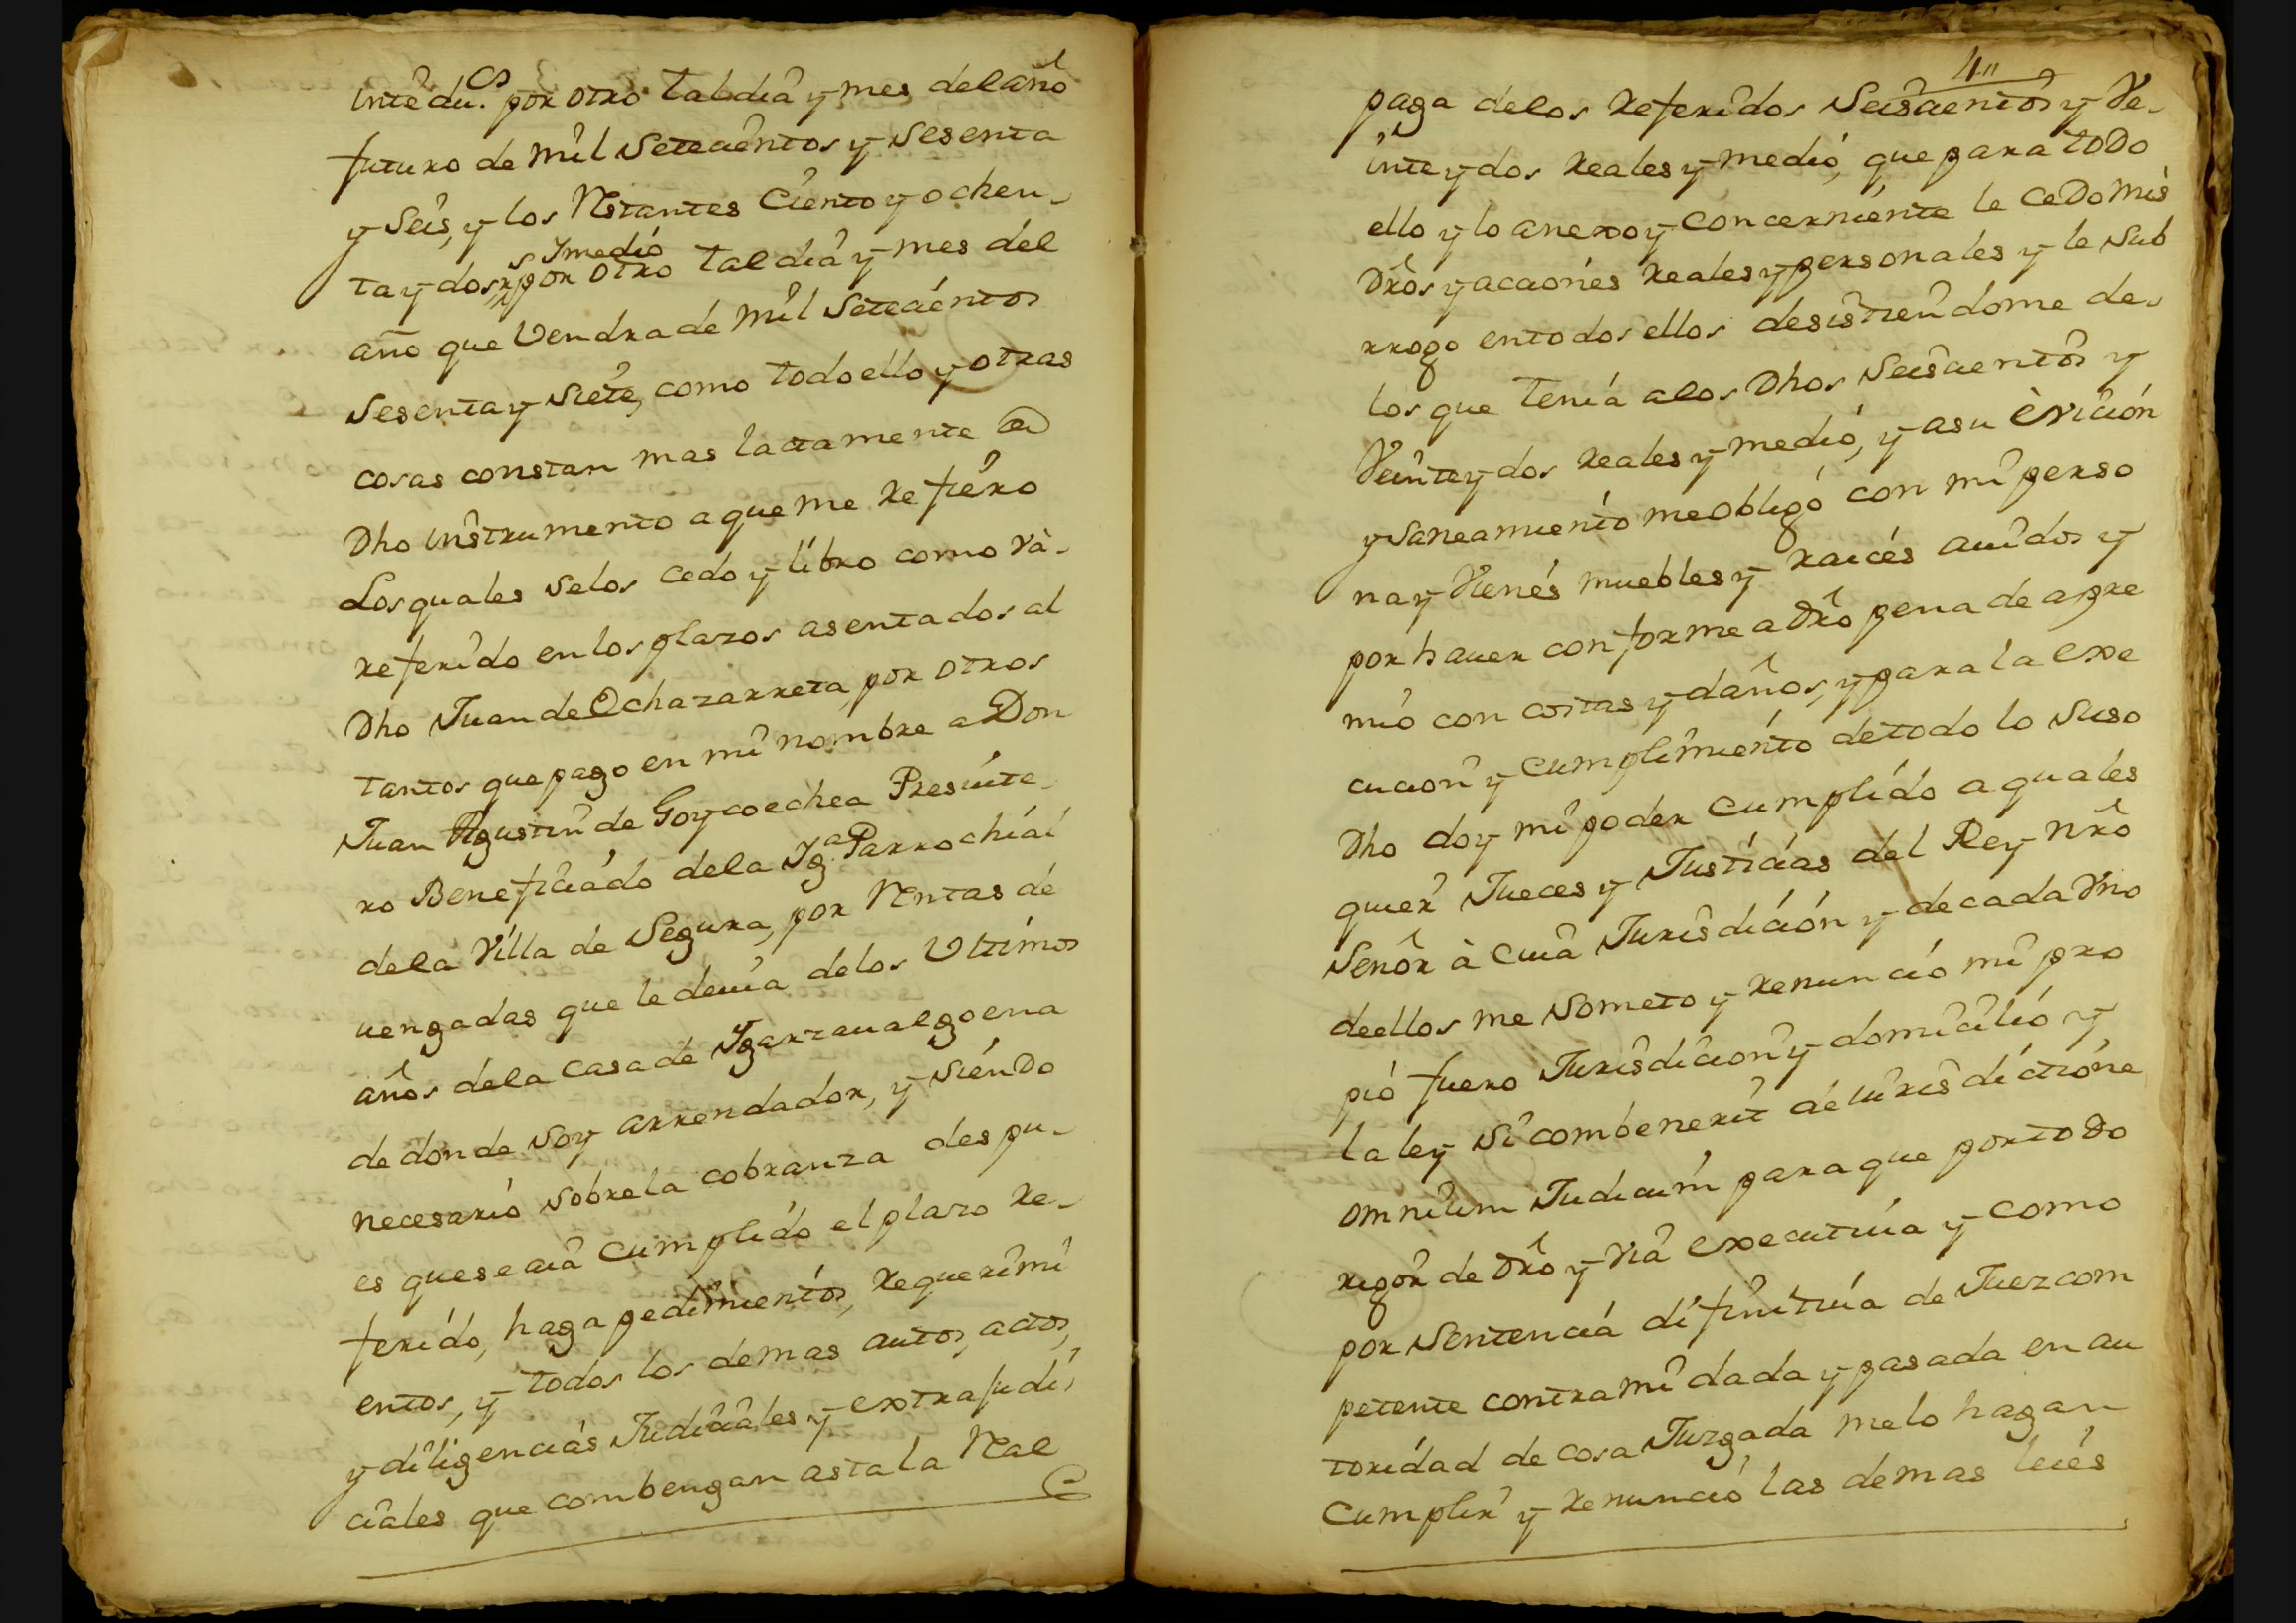 inte du.cs por otro tal dia y mes del año
futuro de mil Setecientos y sesenta
y Seis, y los Restantes Ciento y ochen-
ta y dos rs y medio por otro tal dia y mes del
año que Vendra de mil Setecientos
Sesenta y Siete, como todo ello y otras
cosas constan mas lactamente @
Dho instrumento a que me Refiero
Los quales selos cedo y libro como va-
referido en los plazos asentados al
Dho Juan de Ochazarreta, por otros
tantos que pago en mi nombre a Don
Juan Agustin de Goycoechea Presvite-
ro Beneficiado dela Yg.a Parrochial
dela Villa de Segura, por Rentas de
uengadas que le deuia delos Ultimos
años dela Casa de Ygarzaualgoena
de donde soy arrendador, y siendo
necesario sobrela cobranza despu-
es que se aia cumplido el plazo Re-
ferido, haga pedimientos, Requerimi
entos, y todos los demas autos, actos,
y diligencias Judiciales y extrajudi,
ciales que combengan asta la Real
4"
paga delos Referidos Seiscientos y Ve-
inte y dos Reales y medio, que para todo
ello y lo anexo y concerniente le cedo mis
Dros y acciones Reales y personales y le sub
rrogo entodos ellos desistiendome de-
los que tenia alos Dhos Seiscientos y
Veinte y dos Reales y medio, y asu evicion
y saneamiento me obligo con mi perso
na y Vienes muebles y raices auidos y
por hauer conforme a Dro pena de apre
mio con costas y daños, y para la exe
cucion y cumplimiento detodo lo suso
Dho doy mi poder cumplido a quales
quier Jueces y Justicias del Rey nro
Señor à cuia Jurisdicion y decada Vno
deellos me someto y Renuncio mi pro
pio fuero Jurisdicion y domicilio y
la ley si combenerit de iurisdictione
omnium Judicum para que por todo
rigor de Dro y via executiua y como
por Sentencia difinitiua de Juez com
petente contra mi dada y pasada en au
toridad de cosa Juzgada melo hagan
cumplir y Renuncio las demas leies